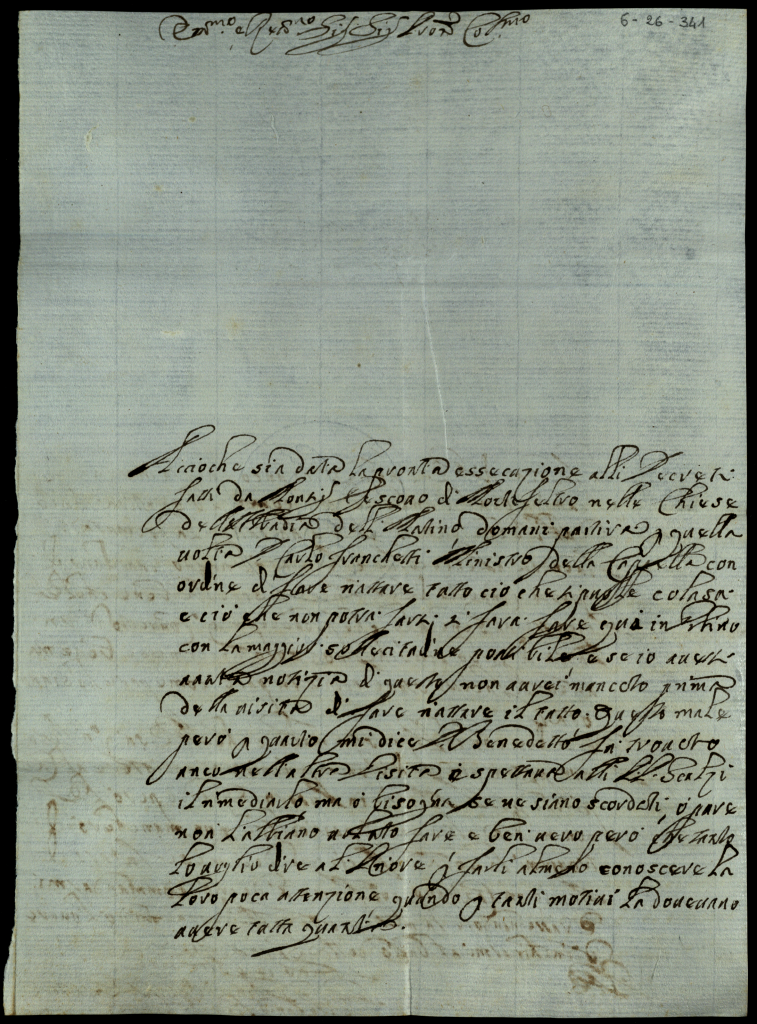 6-26-341
Em.mo e Re.mo Sig. Sig. Pron. Col.mo
Accioche sia data la pronta essecuzione alli Decreti
fatti da Monsig. Vescovo di Montefeltro nelle Chiese
dell'Abbadia del Matino domani partirà p quella
volta D. Carlo Franchetti Ministro della Cappella con
ordine di fare riattare tutto ciò che si puole colasà
e ciò che non potrà farsi, si farà fare quà in Urbino
con la maggior sollecitudine possibile, e se io avessi
avuta notizia di queste non averei mancato prima
della visita di fare riattare il tutto. Questo male
però p quanto mi dice D. Benedetto fu trovato
anco nell'altra Visita e spettava alli PP. Scalzi
il rimediarlo ma o bisogna se ne siano scordati, o pure
non l'abbiano voluto fare e ben vero però che tanto
lo voglio dire al Priore p farli almeno conoscere la
loro poca attenzione quando p tanti motivi la dovevano
avere tutta